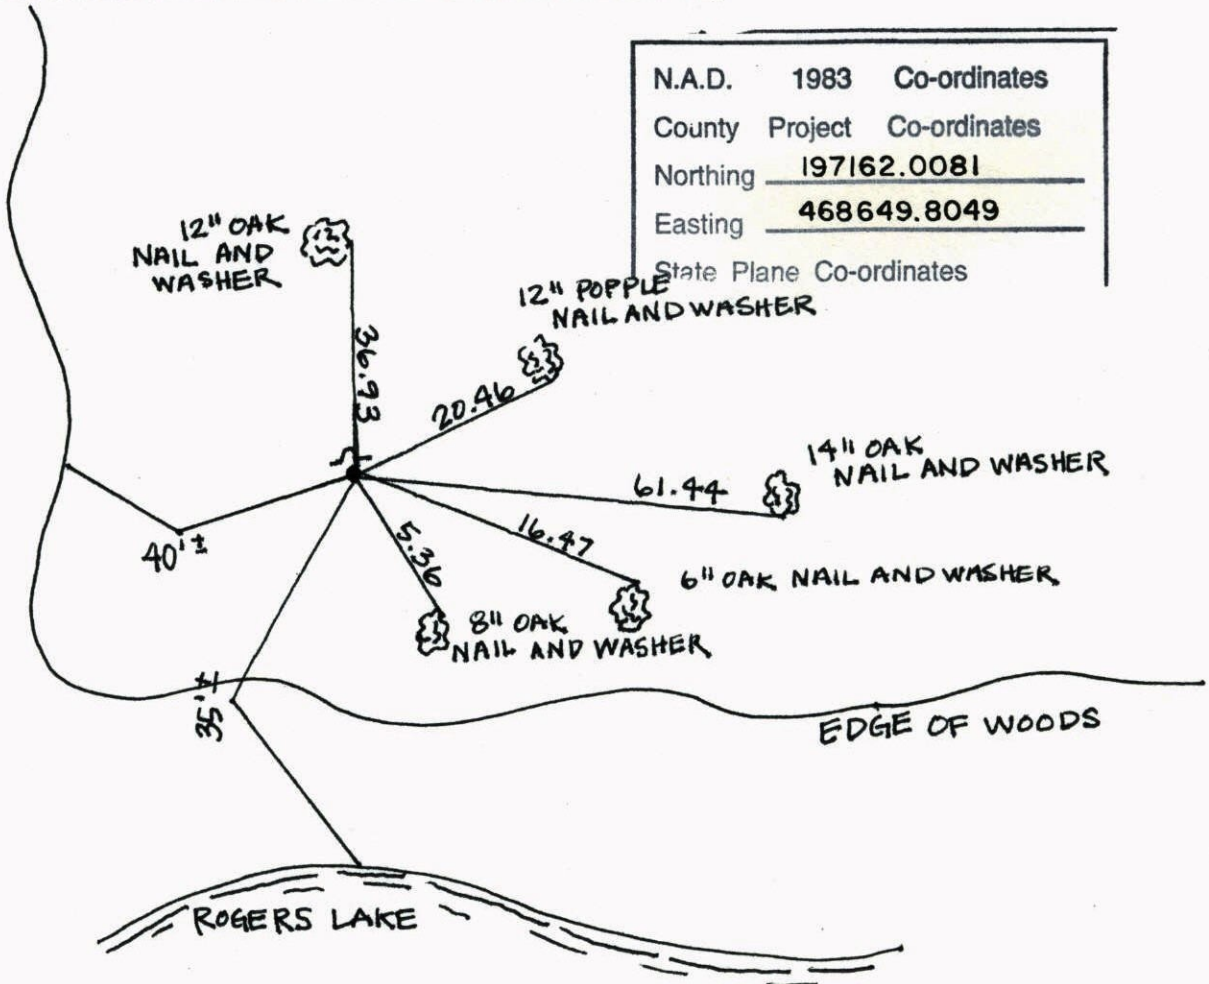 N.A.D. 1983 Co-ordinates
County Project Co-ordinates
Northing 197162.0081
Easting 468649.8049
State Plane Co-ordinates
12" OAK
NAIL AND
WASHER
12" POPPLE
NAIL AND WASHER
36.93
20.46
14" OAK
NAIL AND WASHER
61.44
16.47
5.36
40'±
6" OAK NAIL AND WASHER
8" OAK
NAIL AND WASHER
35'±
EDGE OF WOODS
ROGERS LAKE